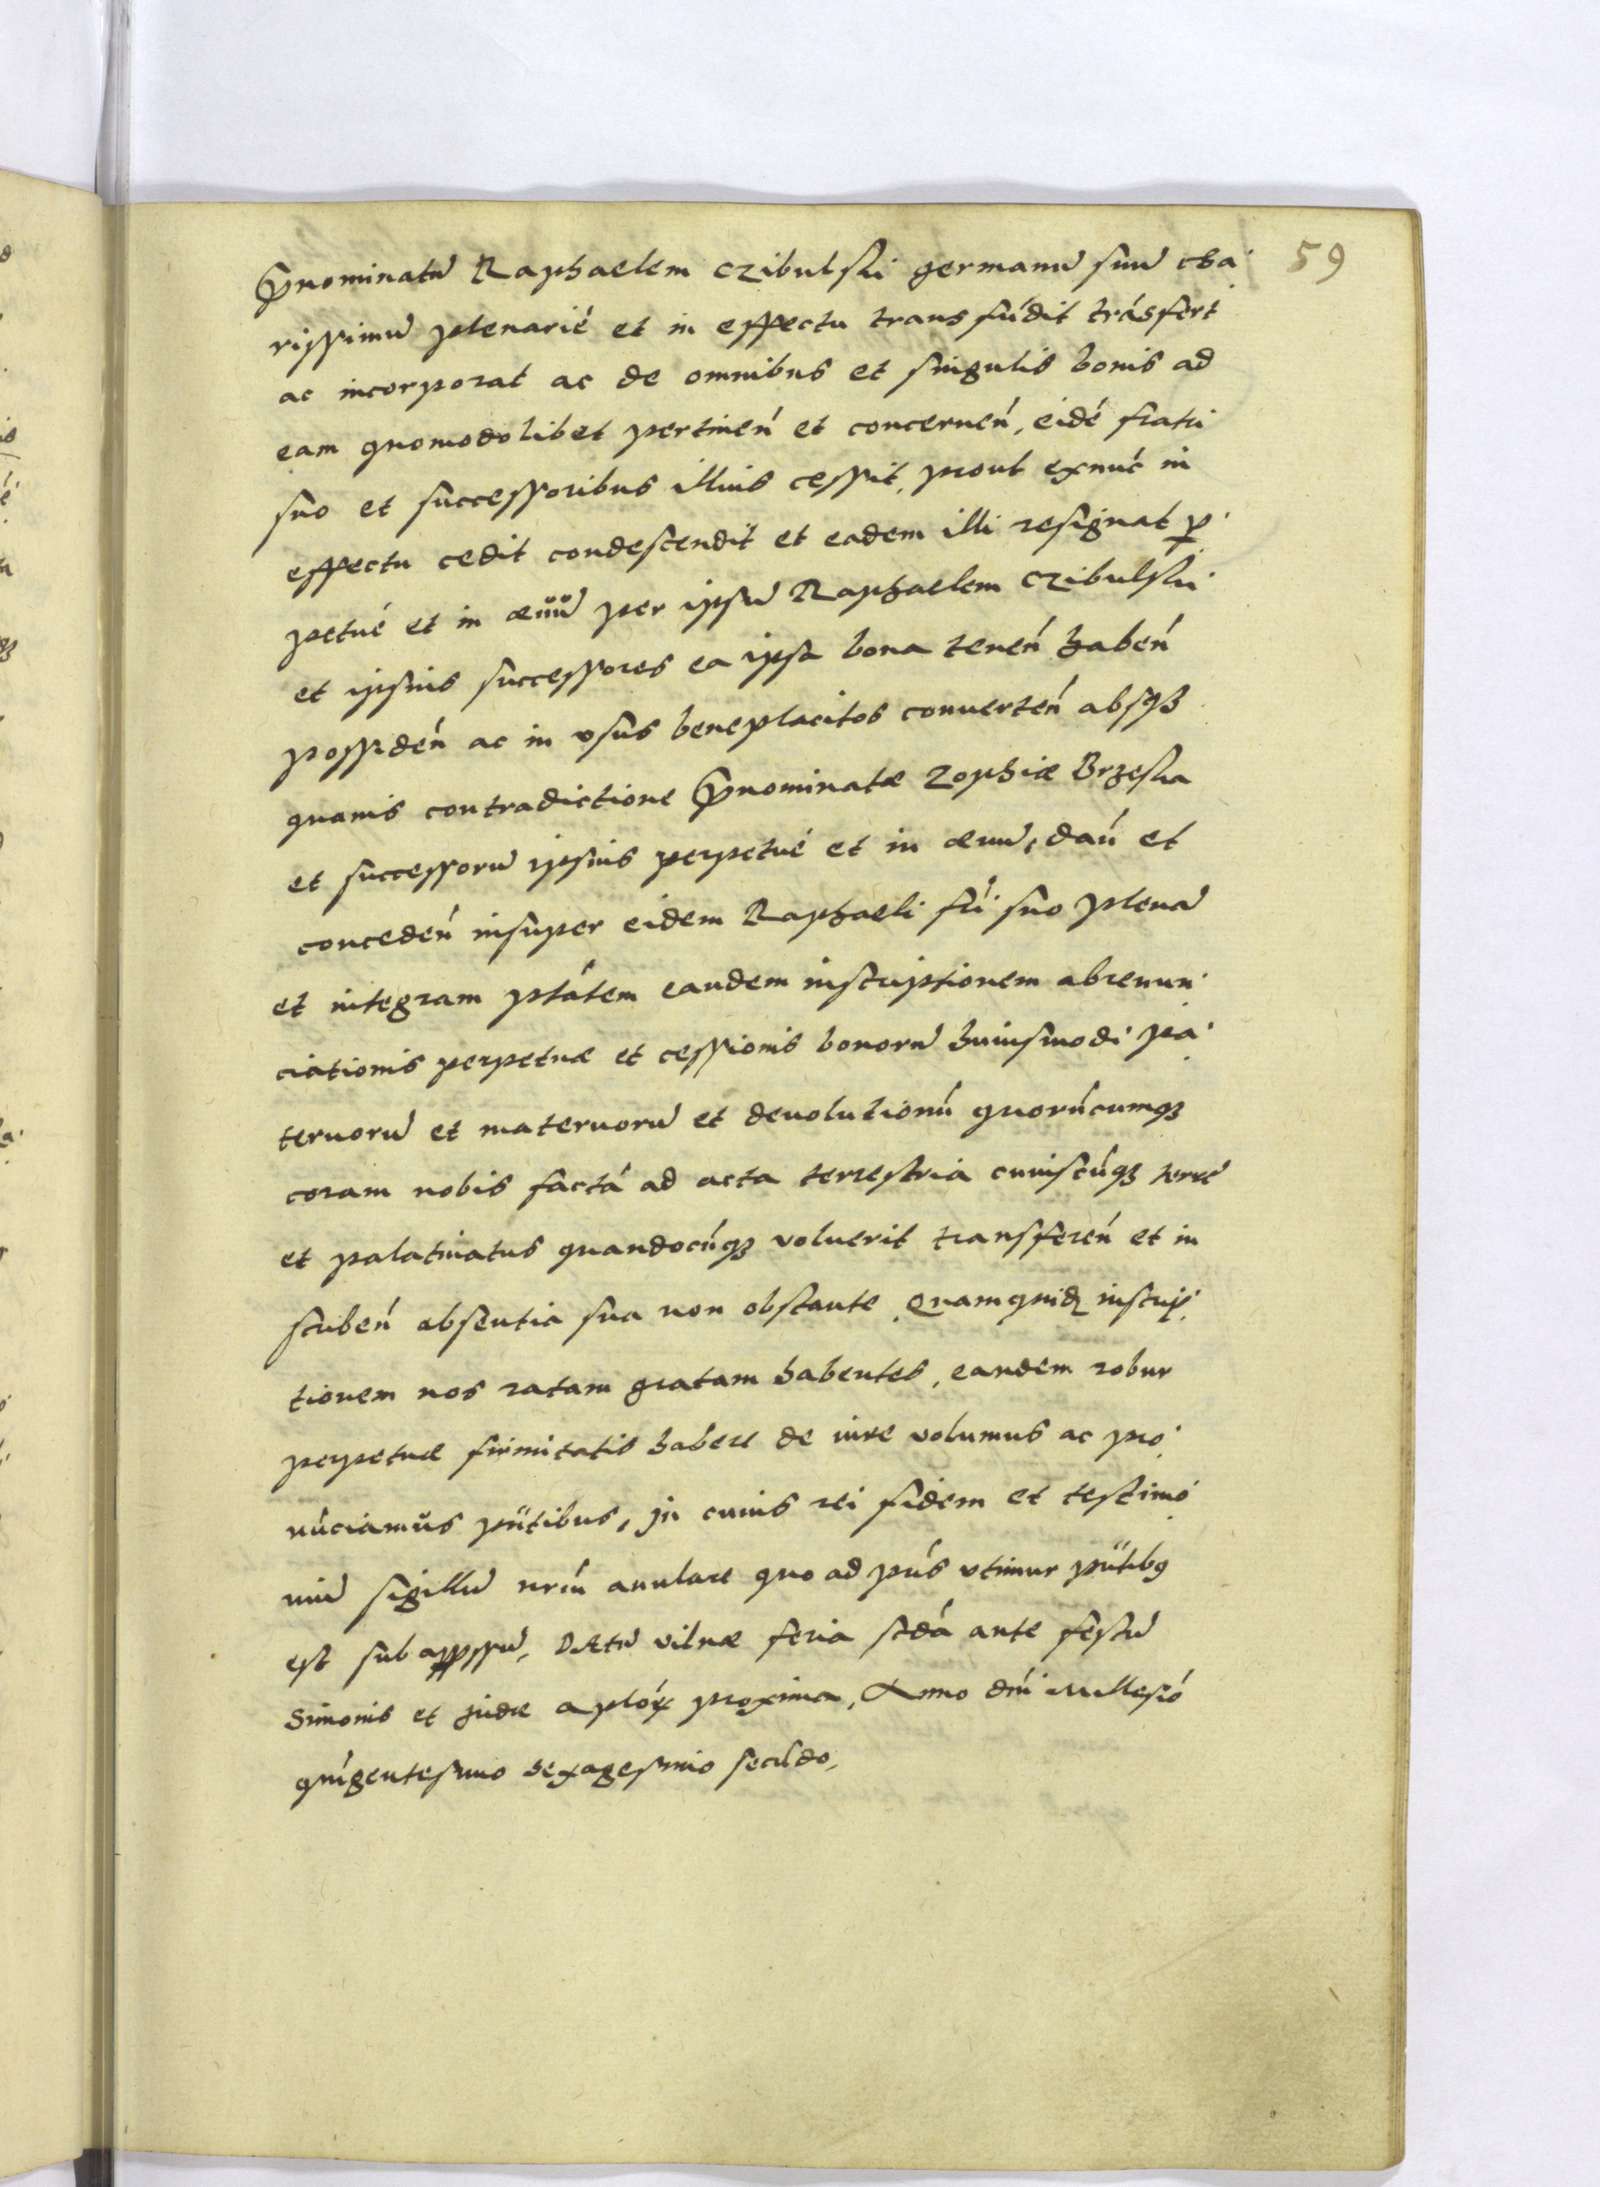 59
P̃nominatũ Raphaelem Czibulski germanũ suũ cha
rissimũ plenariè et in effectu transfúdit trásfert
ac incorporat ac de omnibus et singulis bonis ad
eam quomodolibet pertineń et concerneń, eidé fratri
suo et successoribus illius cessit, prout exnúc in
effectu cedit condescendit et eadem illi resignat ꝑ
petué et in æuũ per ipsũ Raphaelem Czibulski
et ipsius successores ea ipsa bona teneń habeń
possideń ac in vsus beneplacitos conuerteń absqꝫ
quauis contradictione P̃nominatæ Zophiæ Brzeska
et successorũ ipsius perpetué et in æuũ, dań et
concedeń insuper eidem Raphaeli frí suo plenã
et integram ptátem eandem inscriptionem abrenun
ciationis perpetuæ et cessionis bonorũ huiusmodi pa
ternorũ et maternorũ et deuolutionú quorúcumqꝫ
coram nobis factá ad acta terrestria cuiuscúqꝫ terræ
et palatinatus quandocúqꝫ voluerit transfereń et in
scribeń absentia sua non obstante. Quamquidẽ inscrip
tionem nos ratam gratam habentes, eandem robur
perpetuæ firmitatis habere de iure volumus ac pro
núciamus pñtibus, In cuius rei fidem et testimo
niũ sigillũ nrũ anulare quo ad pñs vtimur pñtibꝰ
est subappssũ, Datũ Vilnæ feria scdá ante festũ
Simonis et Judæ Aplóꝝ proxima, Anno dńi Millesió
quígentesimo sexagesimo secúdo,